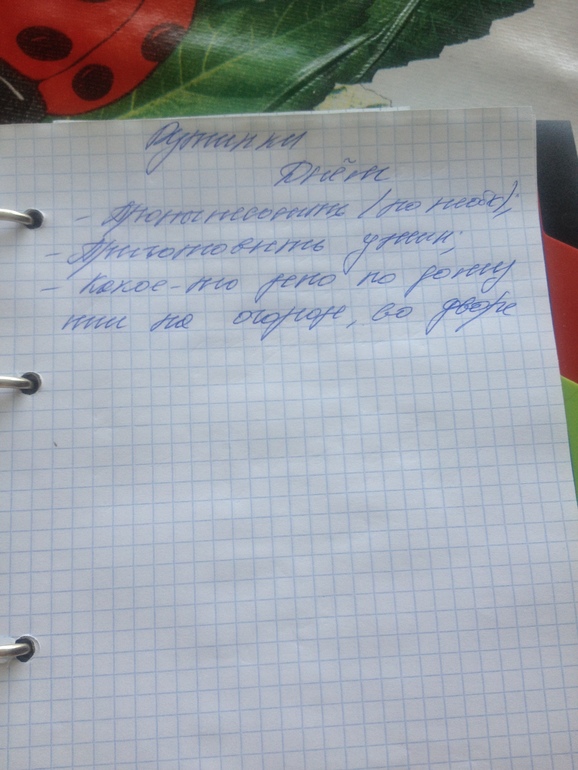 Рутинки
Днём
- Пропылесосить (по необх);
- Приготовить ужин;
- Какое-то дело по дому
или на огороде, во дворе